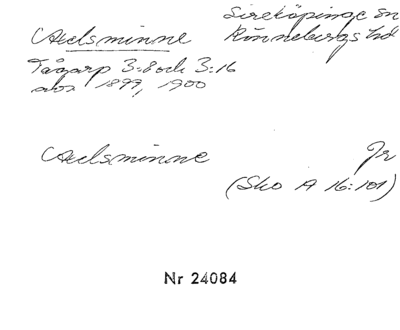 Sireköpinge sn
Axelsminne Rönnebergs hd
Tågarp 3:8 och 3:16
avs 1899, 1900
Axelsminne Jr
(Sko A 16:101)
Nr 24084